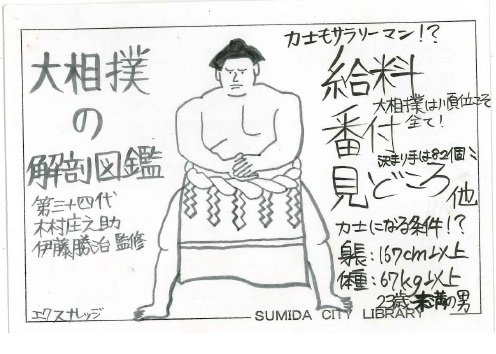 大相撲
の
解剖図鑑
第三十四代
木村庄之助
伊藤勝治 監修
エクスナレッジ
力士もサラリーマン!?
給料
大相撲は順位こそ
全て!
番付
決まり手は82個!
見どころ 他
力士になる条件!?
身長:167cm以上
体重:67kg以上
23歳未満の男
SUMIDA CITY LIBRARY